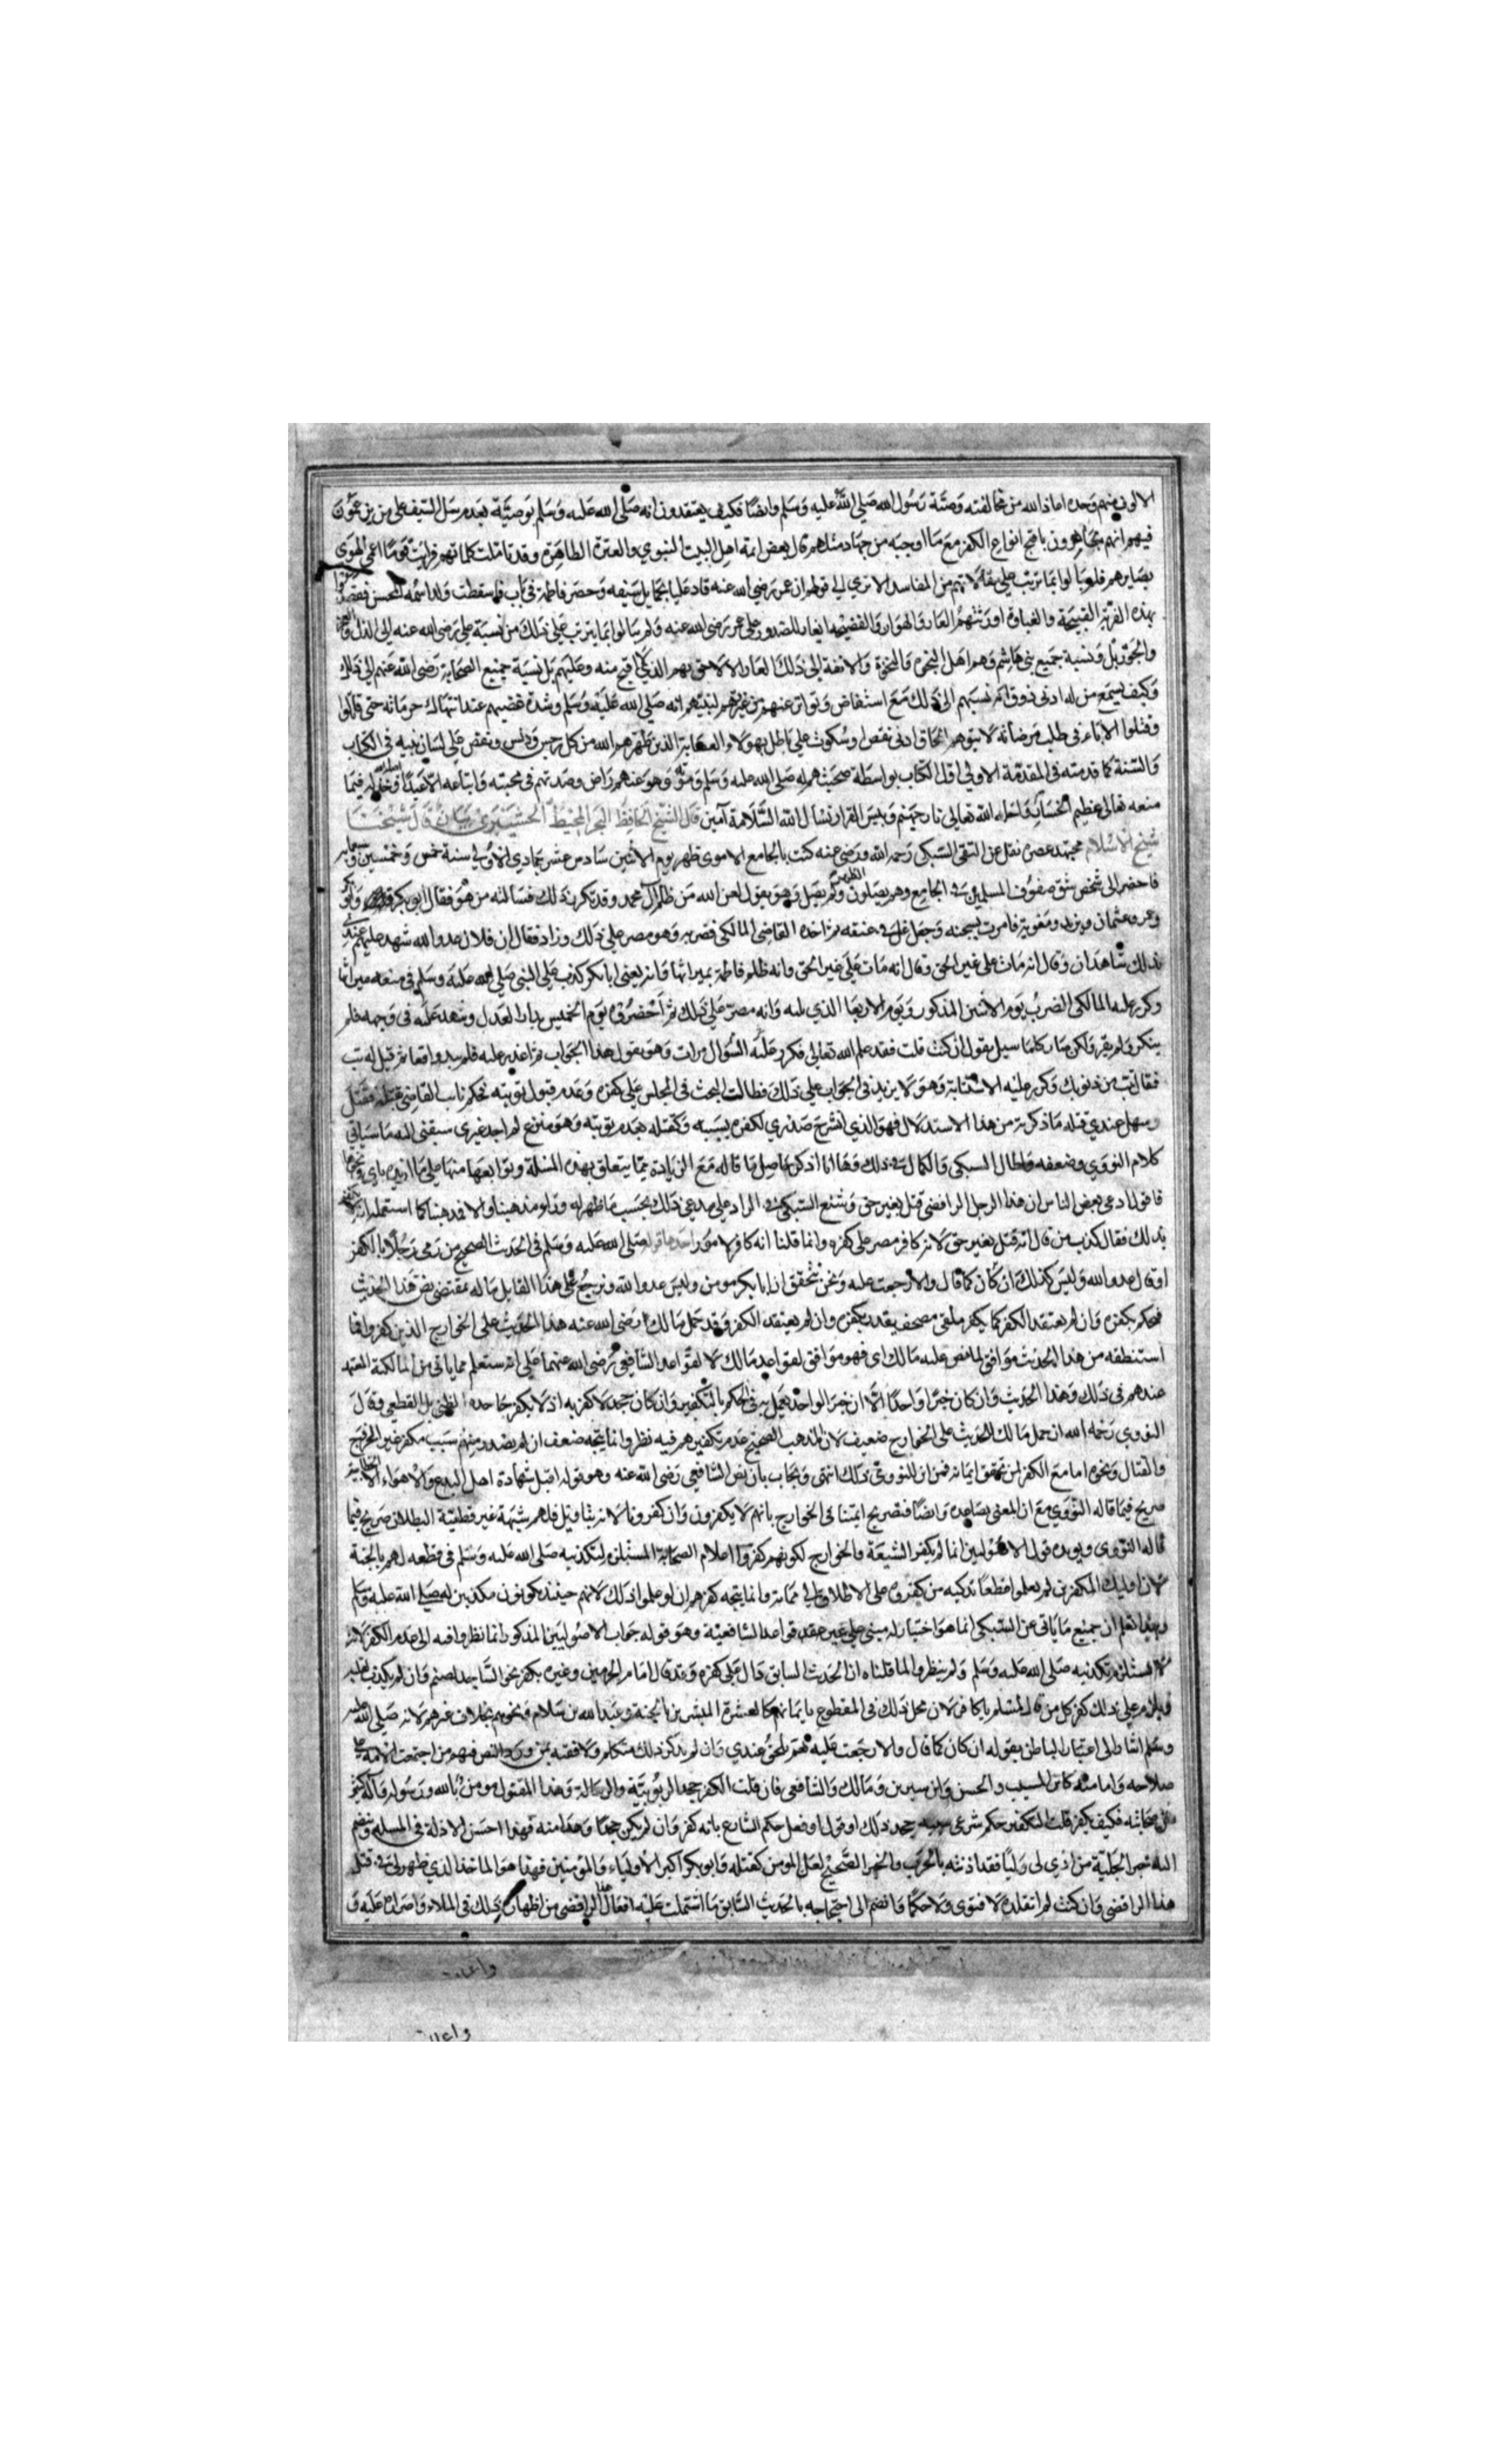 الالوف منهم وحده اما ذا الله من مخالفته وصية رسول الله صلى الله عليه وسلم وايضا فكيف يعتقدون انه صلى الله عليه وسلم يوصيه بعدم سل السيف على من يزعمون
فيهم انهم يجاهرون باقبح انواع الكفر مع ما اوجبه من جهاد مثلهم قال بعض ائمة اهل البيت النبوي والعترة الطاهرة وقد تاملت كلماتهم فرايت قوما اعمى الهوى
بصايرهم فلم يبالوا بما ترتب على مقالاتهم من المفاسد الا ترى الى قولهم ان عمر رضي الله عنه قاد عليا بحمايل سيفه وحصر فاطمة في باب فاسقطت ولدا اسمه المحسن فقصدوا
بهذه الفرية القبيحة والغباوة اورثتهم العار والبوار والفضيحة ايغار الصدور على عمر رضي الله عنه ولم يبالوا بما يترتب على ذلك من نسبة علي رضي الله عنه الى الذل والعجز
والخور بل ونسبة جميع بني هاشم وهم اهل النجدة والنخوة والانفة الى ذلك العار اللاحق بهم الذي لا اقبح منه وعليهم بل نسبة جميع الصحابة رضي الله عنهم الى ذلك
وكيف يسمع من له ادنى ذوق ان نسبهم الى ذلك مع استفاض وتواتر عنهم من غيرتهم لنبيهم صلى الله عليه وسلم وشدة غضبهم عند انتهاك حرماته حتى قاتلوا
وقتلوا الاباء في طلب مرضاته لا يتوهم الحاق ادنى نقص او سكوت على باطل بهولاء العصابة الذين طهرهم الله من كل رجس ودنس ونقص على لسان نبيه في الكتاب
والسنة كما قدمته في المقدمة الاولى اول الكتاب بواسطة صحبتهم له صلى الله عليه وسلم وموته وهو عنهم راض وصدقهم في محبته واتباعه الا عبدا اضله الله وخذله فيما
منعه تعالى عظيم الخسارة واحله الله تعالى نار جهنم وبيس القرار نسال الله السلامة آمين قال الشيخ الحافظ البحر المحيط قال شيخنا
شيخ الاسلام مجتهد عصره نقل عن التقي السبكي رحمه الله ورضي عنه كنت بالجامع الاموي ظهر يوم الاثنين سادس عشر جمادي الاولى سنة خمس وخمسين وسبعماية
فاحضر الى شخص شق صفوف المسلمين في الجامع وهم يصلون الظهر ولم يصل وهو يقول لعن الله من ظلم آل محمد وقد تكرر ذلك فسالته من هو فقال ابو بكر قلت وابو بكر
وعمر وعثمان ويزيد ومعوية فامرت بسجنه وجعل غل في عنقه ثم اخذه القاضي المالكي فضربه وهو مصر على ذلك وزاد فقال ان فلانا عدو الله شهد عليهم عندي
بذلك شاهدان وقال انه مات على غير الحق وقال انه مات على غير الحق وانه ظلم فاطمة ميراثها وانه يعني ابا بكر كذب على النبي صلى الله عليه وسلم في منعه ميراثها
وكرر عليه المالكي الضرب يوم الاثنين المذكور ويوم الاربعا الذي يليه وانه مصر على ذلك ثم احضروه يوم الخميس بدار العدل وشهد عليه في وجهه فلم
ينكر ولم يقر ولكن صار كلما سيل يقول ان كنت قلت فقد علم الله تعالى فكرر عليه السوال مرات وهو يقول هذا الجواب ثم اعذر عليه فلم يبد دافعا ثم قيل له تب
فقال تبت من ذنوبك وكرر عليه الاستتابة وهو لا يزيد في الجواب على ذلك فطال البحث في المجلس على كفره وعدم قبول توبته فحكم نايب القاضي بقتله فقتل
وسهل عندي قتله ما ذكرته من هذا الاستدلال فهو الذي انشرح صدري لكفره بسببه وكقتله بعدم توبته وهو منزع لم اجد غيري سبقني اليه ما سياتي
كلام النووي وضعفه واطال السبكي والكمال في ذلك وها انا اذكر حاصل ما قاله مع الزيادة مما يتعلق بهذه المسئلة وتوابعها منبها على ما ازيده باي ونحوها
فاقول ادعى بعض الناس ان هذا الرجل الرافضي قتل بغير حق وشنع السبكي في الرد على مدعي ذلك بحسب ما ظهر له
بذلك فقال كذب من قال انه قتل بغير حق لانه كافر مصر على كفره وانما قلنا انه كافر لامور احدها قوله صلى الله عليه وسلم في الحديث الصحيح من رمى رجلا بالكفر
او قال عدو الله وليس كذلك ان كان كما قال والا رجعت عليه ونحن نتحقق ان ابا بكر مومن وليس عدوا لله ونرجع على هذا القايل ما له بمقتضى نص هذا الحديث
فحكم بكفره وان لم يعتقد الكفر كما يكفر ملقي مصحف بقذر بكفره وان لم يعتقد الكفر وقد حمل مالك رضي الله عنه هذا الحديث على الخوارج الذين كفروا فما
استنطقه من هذا الحديث موافق لما نص عليه مالك اي فهو موافق لقواعد مالك لا لقواعد الشافعي رضي الله عنهما على انه ستعلم مما ياتي من المالكية المعتمد
عندهم في ذلك وهذا الحديث وان كان خبرا واحدا الا ان خبر الواحد يعمل به في الحكم بالتكفير وان كان جحده لا كفر به اذ لا يكفر جاحد الظني بل القطعي وقال
النووي رحمه الله ان حمل مالك الحديث على الخوارج ضعيف لان المذهب الصحيح عدم تكفيرهم فيه نظر وانما يتجه ضعف ان لم يصدر منهم سبب مكفر غير الخروج
والقتال ونحوه اما مع الكفر لمن تحقق ايمانه فمن اين للنووي ذلك انتهى ويجاب بان نص الشافعي رضي الله عنه وهو قوله اقبل شهادة اهل البدع والاهواء الا الخطابية
صريح فيما قاله النووي مع ان المعنى يساعده وايضا فتصريح ايمتنا في الخوارج بانهم لا يكفرون وان كفرونا لانه بتاويل فلهم شبهة غير قطعية البطلان صريح فيما
قاله النووي ويويده قول الاصوليين انما لم يكفر الشيعة والخوارج لكونهم كفروا اعلام الصحابة المستلزم لتكذيبه صلى الله عليه وسلم في قطعه لهم بالجنة
لان اوليك المكفرين لم يعلموا قطعا تزكيه من كفروه على الاطلاق الى مماته وانما يتجه كفرهم ان لو علموا ذلك لانهم حينيذ يكونون مكذبين له صلى الله عليه وسلم
وبهذا تعلم ان جميع ما ياتي عن السبكي انما هو اختيار له مبني على غير قواعد الشافعية وهو قوله جواب الاصوليين المذكور انما نظروا فيه الى عدم الكفر لانه
لا يستلزم تكذيبه صلى الله عليه وسلم ولم ينظروا لما قلناه ان الحديث السابق دال على كفره وقد قال امام الحرمين وغيره بكفر نحو الساجد لصنم وان لم يكذب بقلبه
فيلزم على ذلك كفر كل من قال لمسلم يا كافر لان محل ذلك في المقطوع بايمانهم كالعشرة المبشرين بالجنة وعبد الله بن سلام ونحوهم بخلاف غيرهم لانه صلى الله عليه
وسلم اشار الى اعتبار الباطن بقوله ان كان كما قال والا رجعت عليه نعم يلحق عندي وان لم يذكر ذلك متكلم ولا فقيه بمن ورد النص فيهم من اجتمعت الامة على
صلاحه وامامته كابن المسيب والحسن وابن سيرين ومالك والشافعي فان قلت الكفر جحد الربوبية والرسالة وهذا المقتول مومن بالله ورسوله وآله وكثير
من صحابته فكيف يكفر قلت التكفير حكم شرعي سببه جحد ذلك او قول او فعل حكم الشارع بانه كفر وان لم يكن جحدا وهذا منه فهذا احسن الادلة في المسئلة وينضم
اليه خبر الحلية من اذى لي وليا فقد اذنته بالحرب والخبر الصحيح لعن المومن كقتله وابو بكر اكبر الاولياء والمومنين فهذا هو الماخذ الذي ظهر لي في قتل
هذا الرافضي وان كنت لم اتقلده لا فتوى ولا حكما وانضم الى احتجاجه بالحديث السابق ما اشتملت عليه افعال هذا الرافضي من اظهار ذلك في الملاء واصراره عليه و